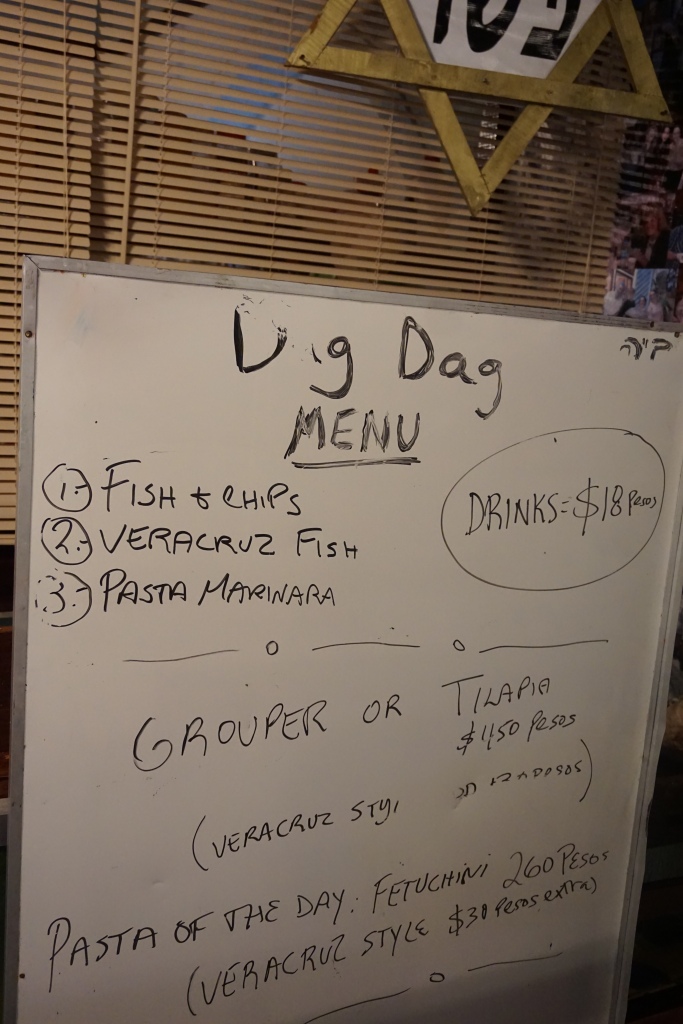 Dig Dag
MENU
1.- FISH & CHIPS
2.- VERACRUZ FISH
3.- PASTA MARINARA
DRINKS = $18 Pesos
GROUPER OR TILAPIA
$450 Pesos
(VERACRUZ
PASTA OF THE DAY: FETUCHINI 260 PESOS
(VERACRUZ STYLE $30 Pesos extra)